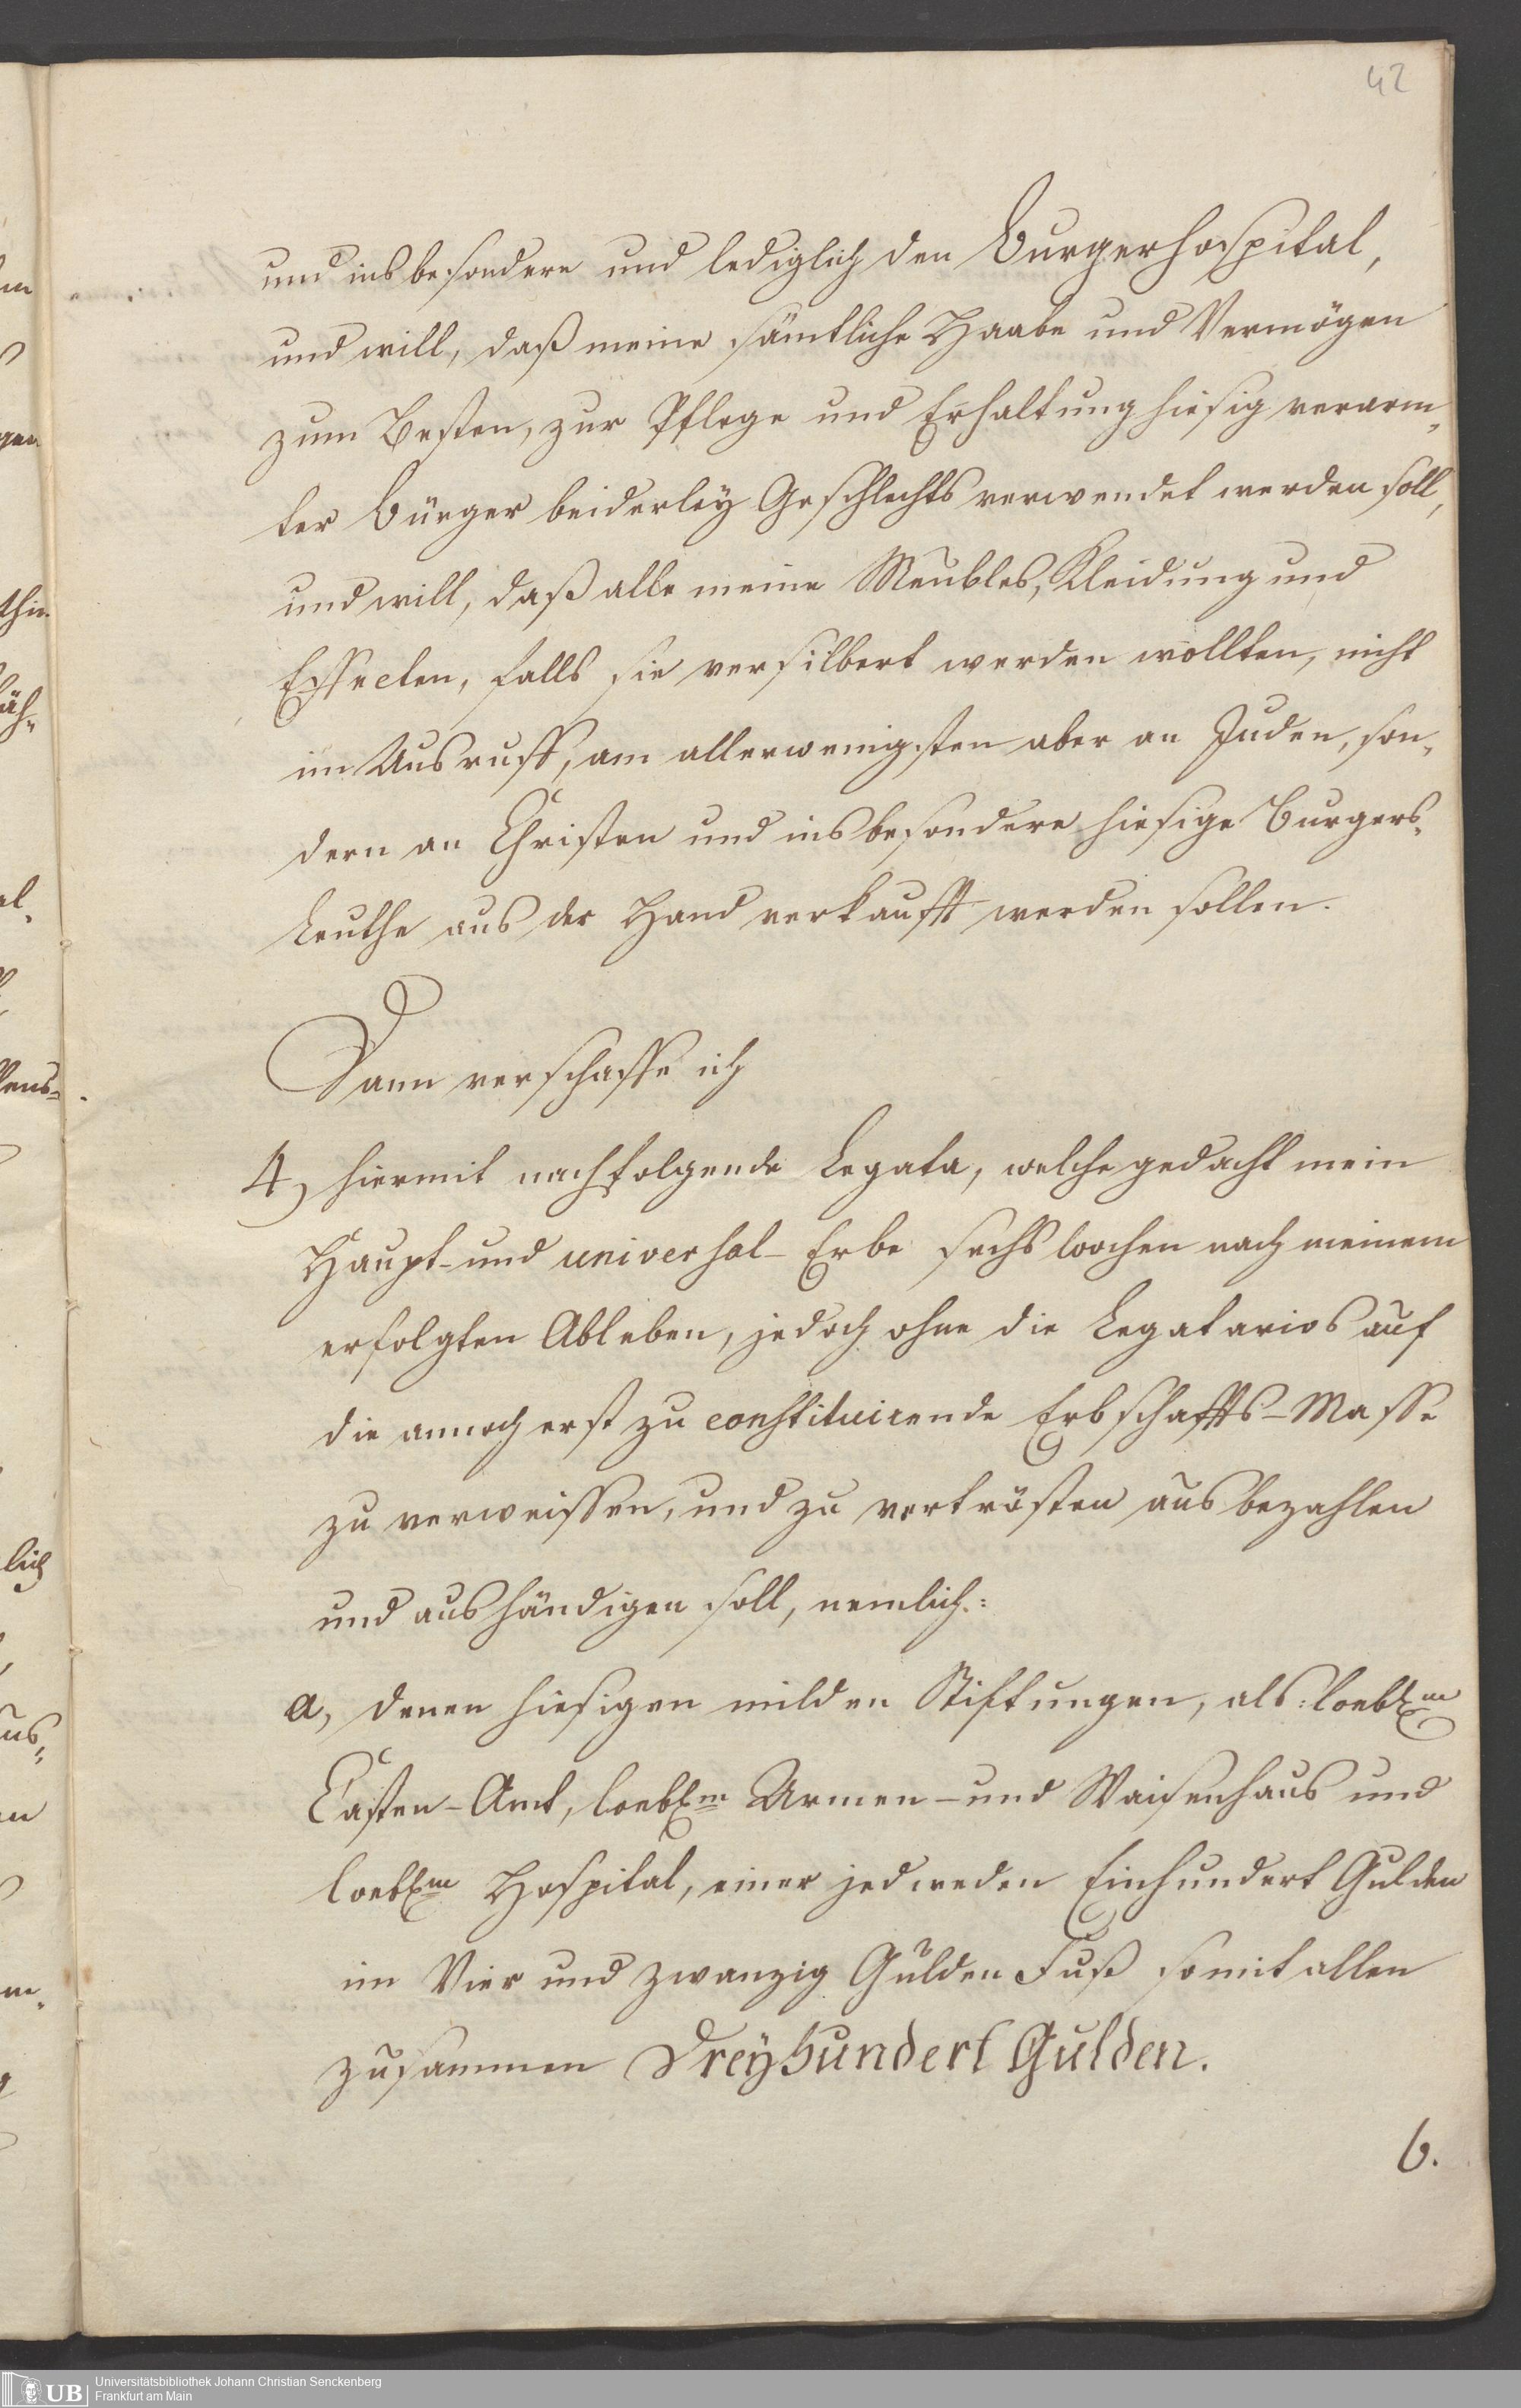 42
und insbesondere und lediglich den Burgerhospital,
und will, daß meine sämtliche Haabe und Vermögen
zum Besten, zur Pflege und Erhaltung hiesig verarm„
ter Bürger beiderleÿ Geschlechts verwendet werden soll,
und will, daß alle meine Meubles, Kleidung und
Effecten, falls sie versilbert werden wollten, nicht
im Ausruff, am allerwenigsten aber an Juden, son„
dern an Christen und insbesondere hiesige Burgers„
Leuthe aus der Hand verkaufft werden sollen.
Dann verschaffe ich
4, hiermit nachfolgende Legata, welche gedacht mein
Haupt- und universal- Erbe sechs Wochen nach meinem
erfolgten Ableben, jedoch ohne die Legatarios auf
die annoch erst zu constituirende Erbschaffts-Masse
zu verweissen, und zu vertrösten ausbezahlen
und aushändigen soll, nemlich:
a, denen hiesigen milden Stiftungen, als: loebl^m
Casten-Amt, loebl^m Armen- und Waisenhaus und
loebl^m Hospital, einer jedweden Einhundert Gulden
im Vier und zwanzig Gulden Fuß somit allen
zusammen Dreÿhundert Gulden.
b.
UB
Universitätsbibliothek Johann Christian Senckenberg
Frankfurt am Main